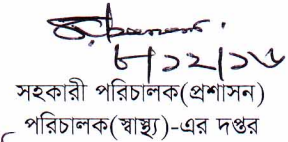 ৮/১২/১৬
সহকারী পরিচালক(প্রশাসন)
পরিচালক(স্বাস্থ্য)-এর দপ্তর